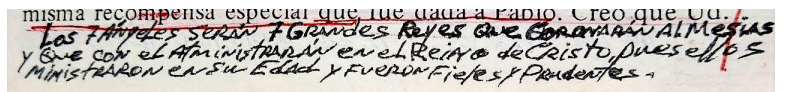 misma recompensa especial que fue dada a Pablo. Creo que Ud.
Los 7 Ángeles SERÁN 7 GRANDES Reyes QUE CORONARAN Al Mesías
y Que CON el ADMINISTRARÁN en el Reino de Cristo, pues ellos
MINISTRARON en Su Edad y FUERON Fieles y Prudentes.